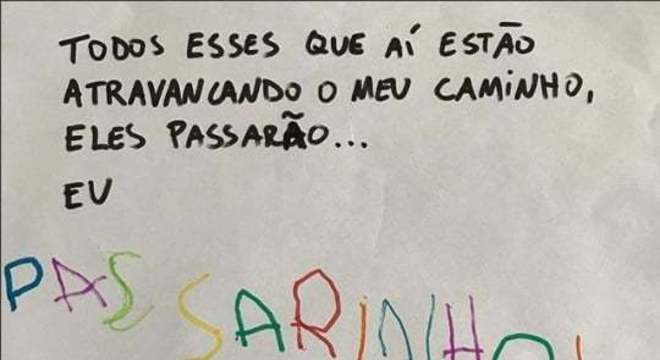 TODOS ESSES QUE AÍ ESTÃO
ATRAVANCANDO O MEU CAMINHO,
ELES PASSARÃO...
EU
PASSARINHO!